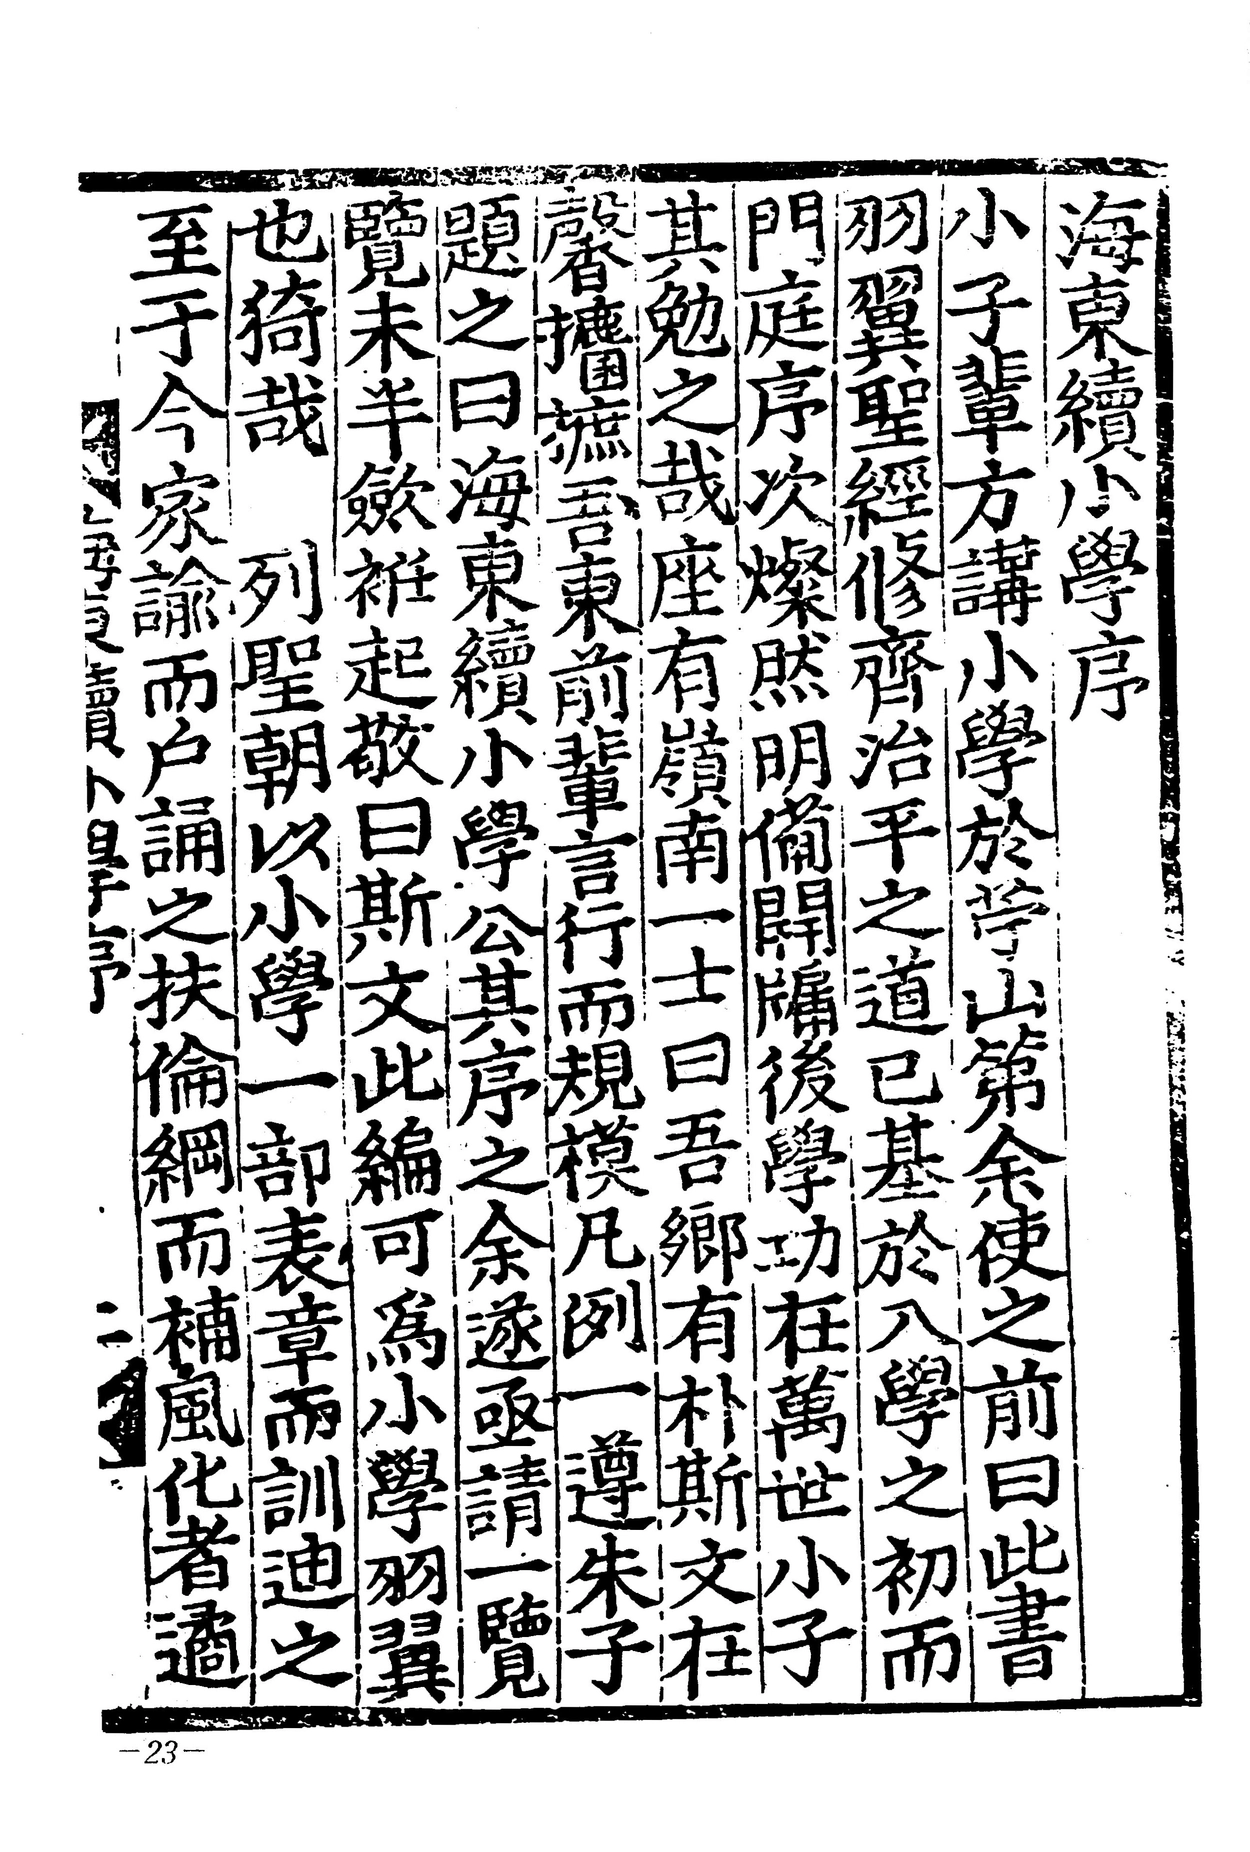 海東續小學序
小子輩方講小學於苧山第余使之前曰此書
羽翼聖經修齊治平之道已基於入學之初而
門庭序次燦然明備開牖後學功在萬世小子
其勉之哉座有嶺南一士曰吾鄉有朴斯文在
馨攟摭吾東前輩言行而規模凡例一遵朱子
題之曰海東續小學公其序之余遂亟請一覽
覽未半斂袵起敬曰斯文此編可爲小學羽翼
也猗哉 列聖朝以小學一部表章而訓迪之
至于今家諭而户誦之扶倫綱而補風化者遹
海東續小學序 二
-23-